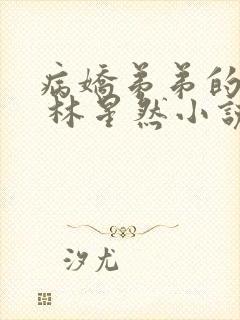 病嬌弟弟的
林星然小說
汐尤